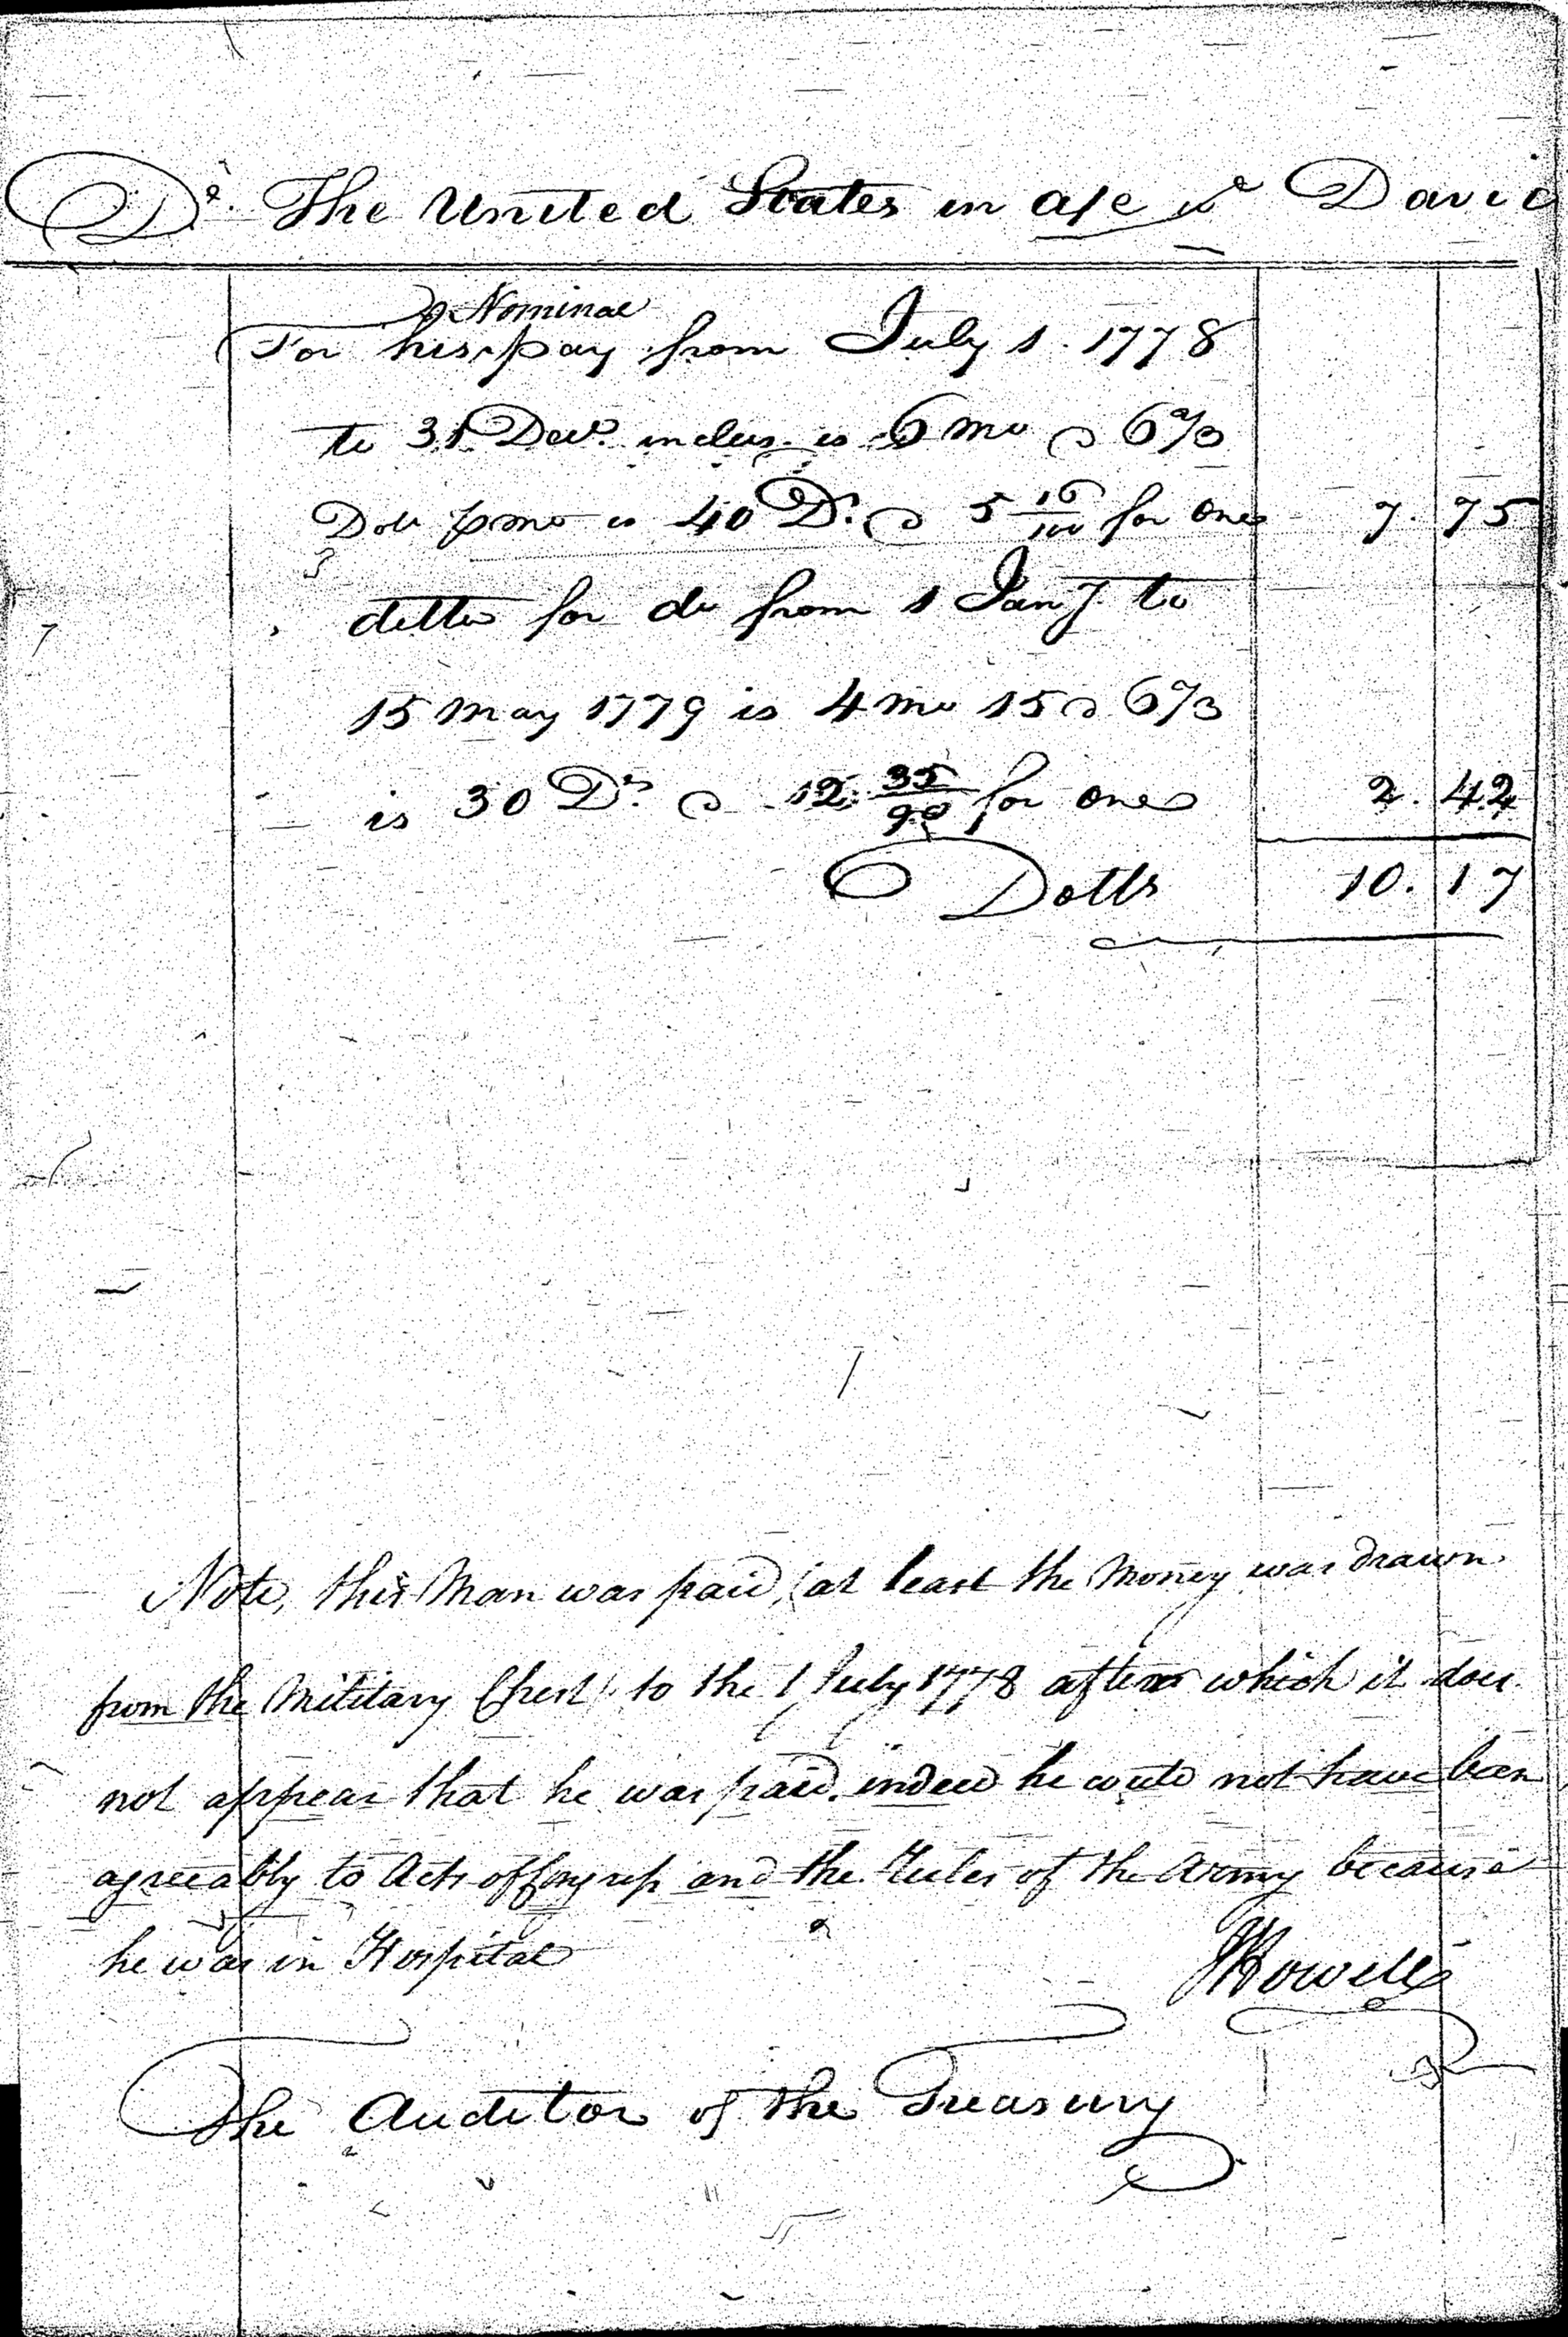 Dr. The United States in a/c w David
Nominal
For his pay from July 1. 1778
to 31 Decr. inclus. is 6 mo @ 6 2/3
Dolls p mo is 40 Ds. @ 5 16/100 for one 7. 75
ditto for do from 1 Jany. to
15 May 1779 is 4 mo 15 @ 6 2/3
is 30 Ds. @ 12 35/90 for one 2. 42
Dolls 10. 17
Note, this Man was paid, (at least the Money was drawn
from the Military Chest) to the 1 July 1778 after which it does
not appear that he was paid. indeed he could not have been
agreeably to Acts of Congress and the Rules of the Army because
he was in Hospital
JHowell
The Auditor of the Treasury